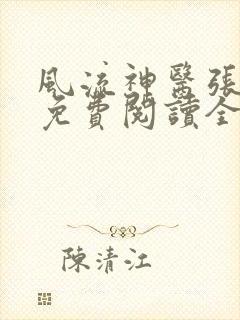 風流神醫張
免費閱讀全
陳清江